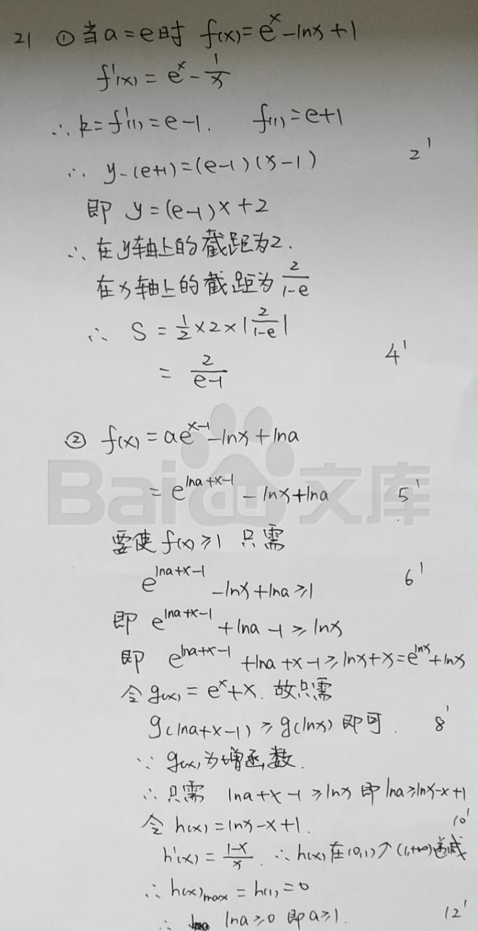 21 ① 当a=e时 f(x)=e^x-lnx+1
f'(x)=e^x-1/x
∴k=f'(1)=e-1. f(1)=e+1
∴ y-(e+1)=(e-1)(x-1) 2'
即 y=(e-1)x+2
∴在y轴上的截距为2.
在x轴上的截距为2/(1-e)
∴ S=1/2×2×|2/(1-e)|
=2/(e-1) 4'
② f(x)=ae^(x-1)-lnx+lna
=e^(lna+x-1)-lnx+lna 5'
Bai 文库
要使f(x)≥1 只需
e^(lna+x-1)-lnx+lna≥1 6'
即 e^(lna+x-1)+lna-1≥lnx
即 e^(lna+x-1)+lna+x-1≥lnx+x=e^(lnx)+lnx
令g(x)=e^x+x. 故只需
g(lna+x-1)≥g(lnx)即可. 8'
∵ g(x)为增函数.
∴只需 lna+x-1≥lnx 即lna≥lnx-x+1
令 h(x)=lnx-x+1. 10'
h'(x)=(1-x)/x. ∴h(x)在(0,1)↗(1,+∞)递减
∴h(x)max=h(1)=0
∴ lna≥0 即a≥1. 12'